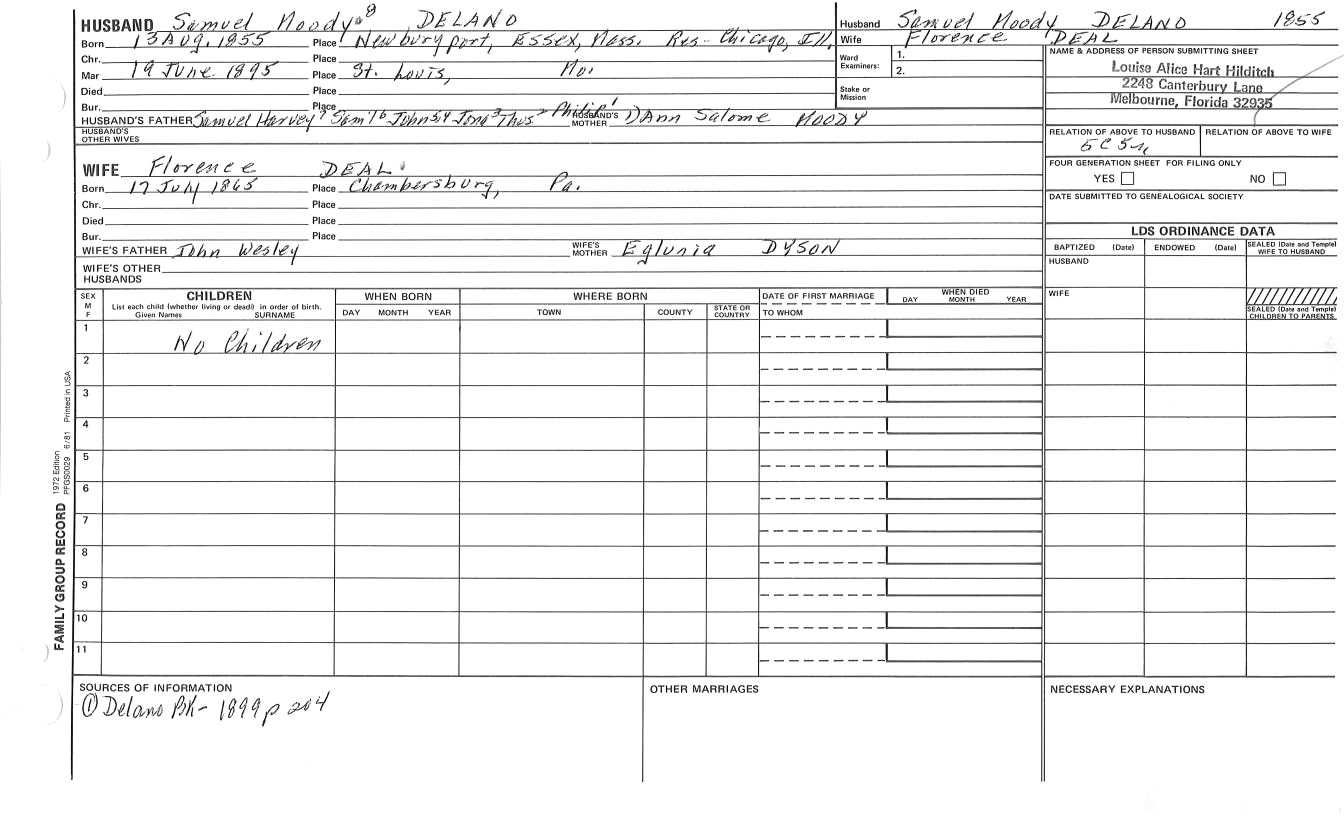 HUSBAND Samuel Moody 8 DELANO
Born 13 Aug, 1855 Place Newburyport, Essex, Mass. Res- Chicago, Ill.
Chr. Place
Mar 19 June 1895 Place St. Louis, Mo.
Died Place
Bur. Place
HUSBAND'S FATHER Samuel Harvey 7 Sam'l 6 John 5,4 Jona 3 Thos 2 Philip 1 HUSBAND'S MOTHER Ann Salome MOODY
HUSBAND'S OTHER WIVES
Husband Samuel Moody DELANO 1855
Wife Florence DEAL
Ward Examiners: 1.
2.
Stake or Mission
NAME & ADDRESS OF PERSON SUBMITTING SHEET
Louise Alice Hart Hilditch
2248 Canterbury Lane
Melbourne, Florida 32935
RELATION OF ABOVE TO HUSBAND RELATION OF ABOVE TO WIFE
5C 5r
FOUR GENERATION SHEET FOR FILING ONLY
YES NO
DATE SUBMITTED TO GENEALOGICAL SOCIETY
WIFE Florence DEAL
Born 17 July 1865 Place Chambersburg, Pa.
Chr. Place
Died Place
Bur. Place
WIFE'S FATHER John Wesley WIFE'S MOTHER Eglunia DYSON
WIFE'S OTHER HUSBANDS
LDS ORDINANCE DATA
BAPTIZED (Date) ENDOWED (Date) SEALED (Date and Temple) WIFE TO HUSBAND
HUSBAND
WIFE
SEALED (Date and Temple) CHILDREN TO PARENTS
SEX M F CHILDREN WHEN BORN WHERE BORN DATE OF FIRST MARRIAGE WHEN DIED
List each child (whether living or dead) in order of birth.
Given Names SURNAME DAY MONTH YEAR TOWN COUNTY STATE OR COUNTRY TO WHOM DAY MONTH YEAR
1 No Children
2
3
4
5
6
7
8
9
10
11
FAMILY GROUP RECORD 1972 Edition PFGS0029 6/81 Printed in USA
SOURCES OF INFORMATION
① Delano Bk- 1899 p 204
OTHER MARRIAGES
NECESSARY EXPLANATIONS